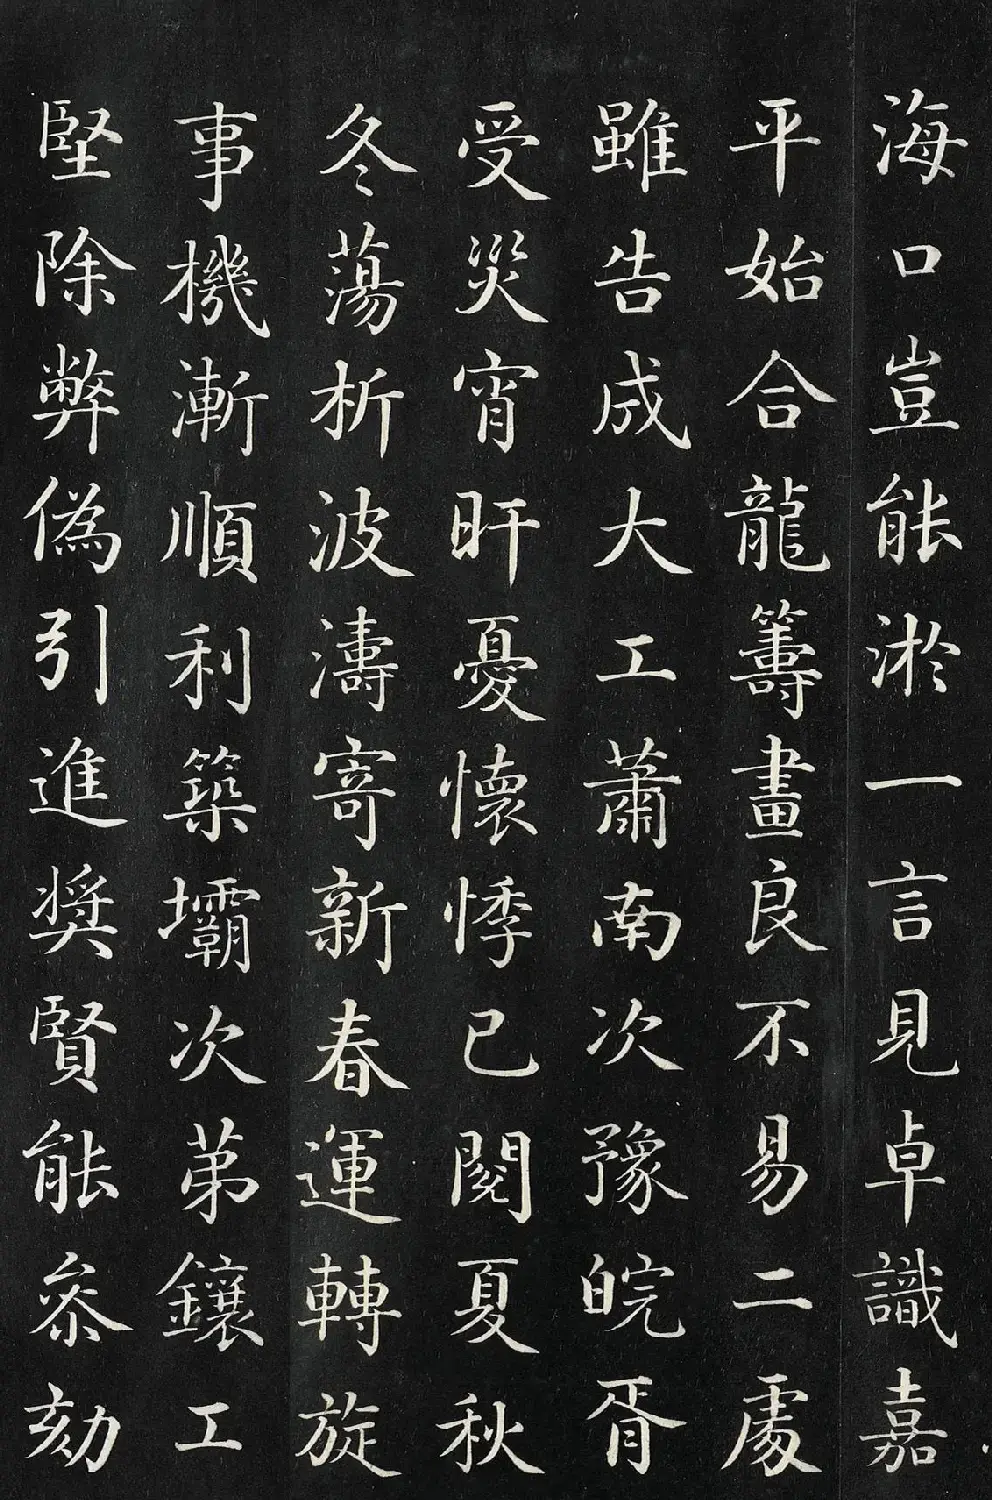 海口豈能淤一言見卓識嘉
平始合龍籌畫良不易二處
雖告成大工蕭南次豫皖胥
受災宵旰憂懷悸已閱夏秋
冬蕩析波濤寄新春運轉旋
事機漸順利築壩次第鑲工
堅除弊偽引進奨賢能叅劾